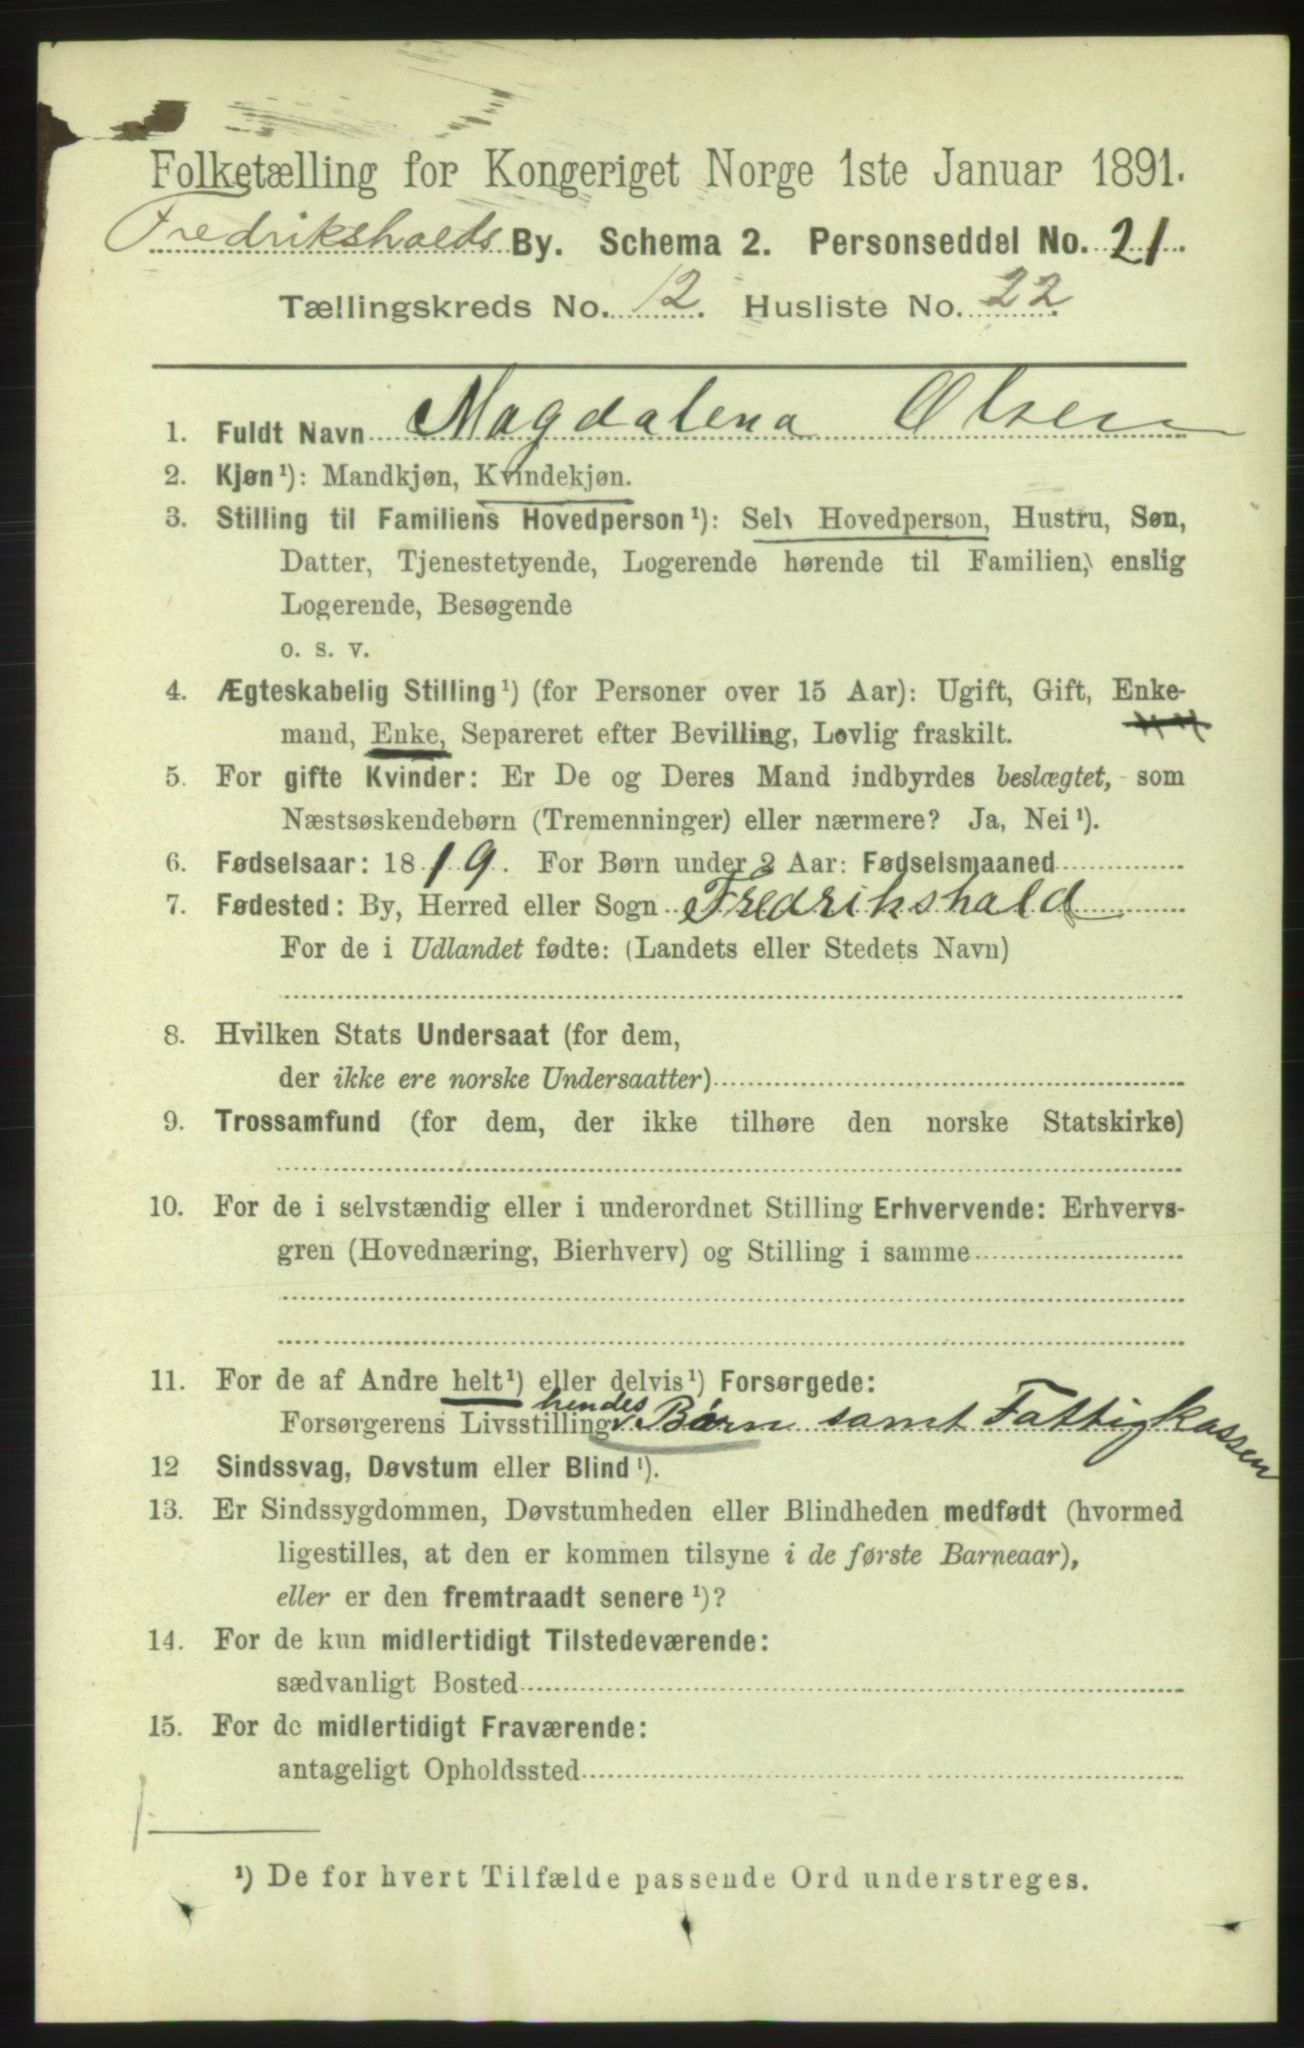 Folketælling for Kongeriget Norge 1ste Januar 1891.
Fredriksholds By. Schema 2. Personseddel No. 21.
Tællingskreds No. 12. Husliste No. 22
1. Fuldt Navn Magdalena Olsen
2. Kjøn¹): Mandkjøn, Kvindekjøn.
3. Stilling til Familiens Hovedperson¹): Selv Hovedperson, Hustru, Søn,
Datter, Tjenestetyende, Logerende hørende til Familien, enslig
Logerende, Besøgende
o. s. v.
4. Ægteskabelig Stilling¹) (for Personer over 15 Aar): Ugift, Gift, Enke-
mand, Enke, Separeret efter Bevilling, Lovlig fraskilt.
5. For gifte Kvinder: Er De og Deres Mand indbyrdes beslægtet, som
Næstsøskendebørn (Tremenninger) eller nærmere? Ja, Nei¹).
6. Fødselsaar: 1819. For Børn under 2 Aar: Fødselsmaaned
7. Fødested: By, Herred eller Sogn Fredrikshald
For de i Udlandet fødte: (Landets eller Stedets Navn)
8. Hvilken Stats Undersaat (for dem,
der ikke ere norske Undersaatter)
9. Trossamfund (for dem, der ikke tilhøre den norske Statskirke)
10. For de i selvstændig eller i underordnet Stilling Erhvervende: Erhvervs-
gren (Hovednæring, Bierhverv) og Stilling i samme
11. For de af Andre helt¹) eller delvis¹) Forsørgede:
Forsørgerens Livsstilling hendes Børn samt Fattigkassen
12 Sindssvag, Døvstum eller Blind¹).
13. Er Sindssygdommen, Døvstumheden eller Blindheden medfødt (hvormed
ligestilles, at den er kommen tilsyne i de første Barneaar),
eller er den fremtraadt senere¹)?
14. For de kun midlertidigt Tilstedeværende:
sædvanligt Bosted
15. For de midlertidigt Fraværende:
antageligt Opholdssted
¹) De for hvert Tilfælde passende Ord understreges.